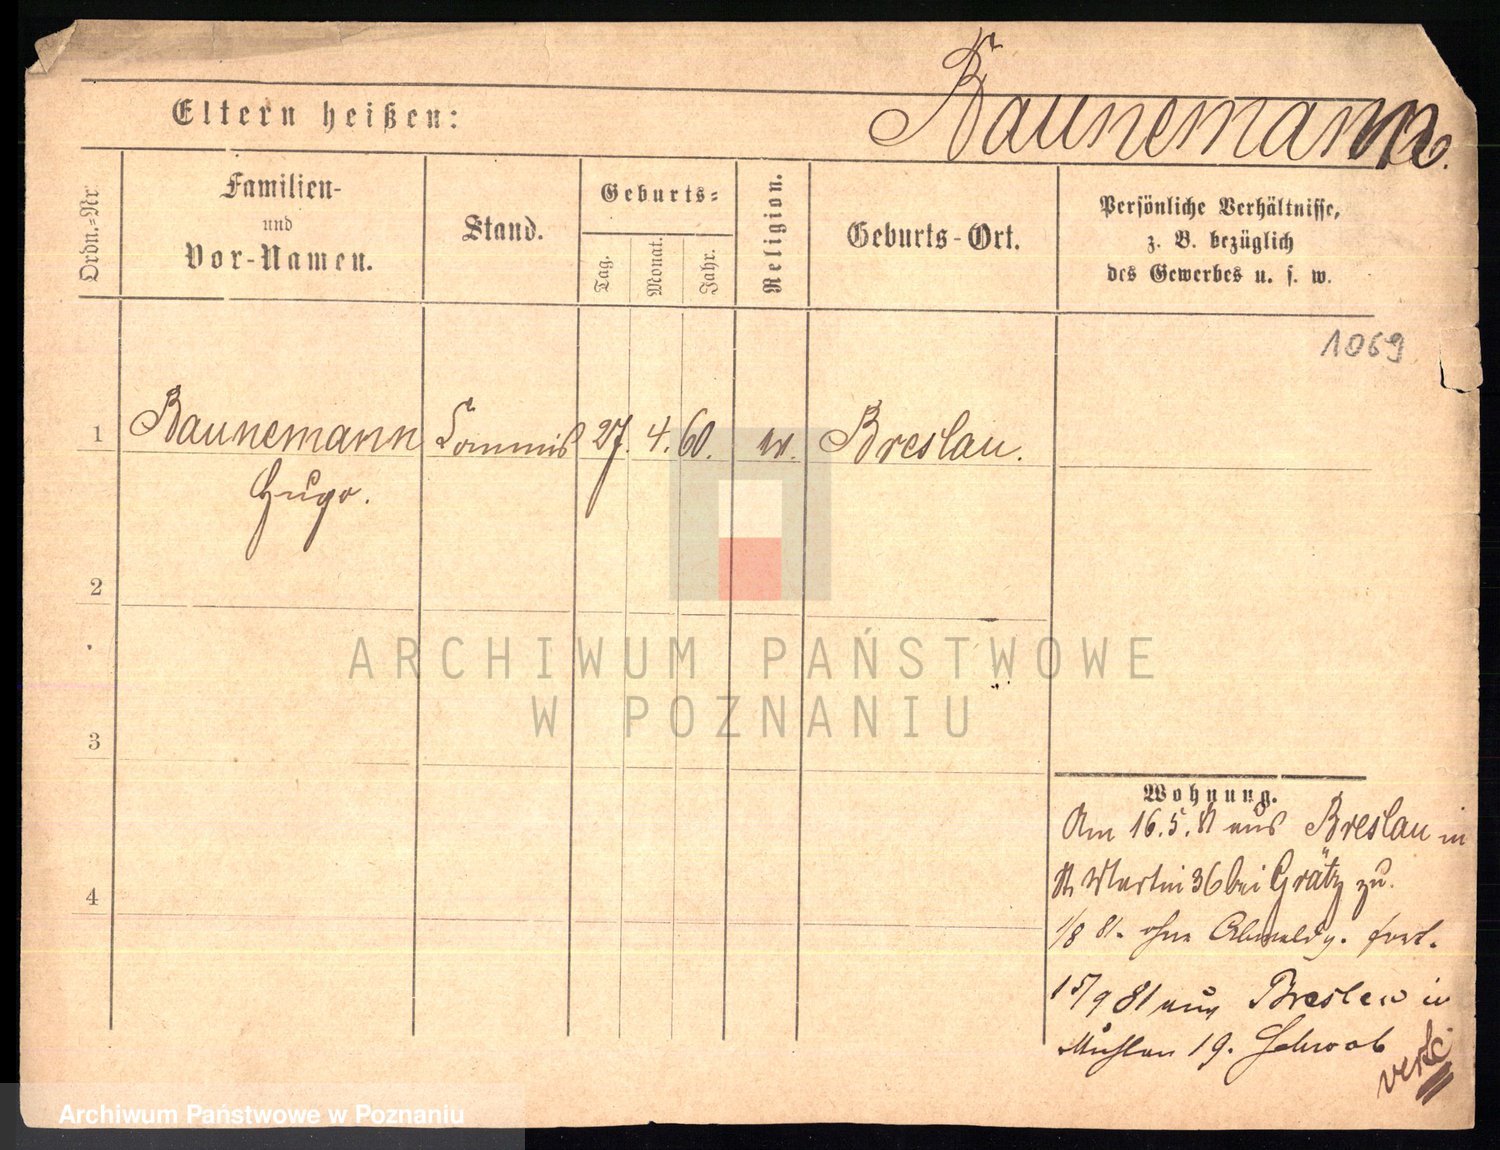 Baunemann.
Eltern heißen:
Ordn.=Nr
Familien-
und
Vor-Namen.
Stand.
Geburts=
Tag.
Monat.
Jahr.
Religion.
Geburts-Ort.
Persönliche Verhältnisse,
z. B. bezüglich
des Gewerbes u. s. w.
1069
1 Baunemann Commis 27. 4. 60. Breslau.
Hugo.
2
3
4
Wohnung.
Am 16. 5. 81 aus Breslau in
St. Martin 36 bei Grätz zu.
1/8 81. ohne Abmeldg. fort.
15/9 81 aus Breslau in
Mühlen 19. Schwab
verte
ARCHIWUM PAŃSTWOWE
W POZNANIU
Archiwum Państwowe w Poznaniu